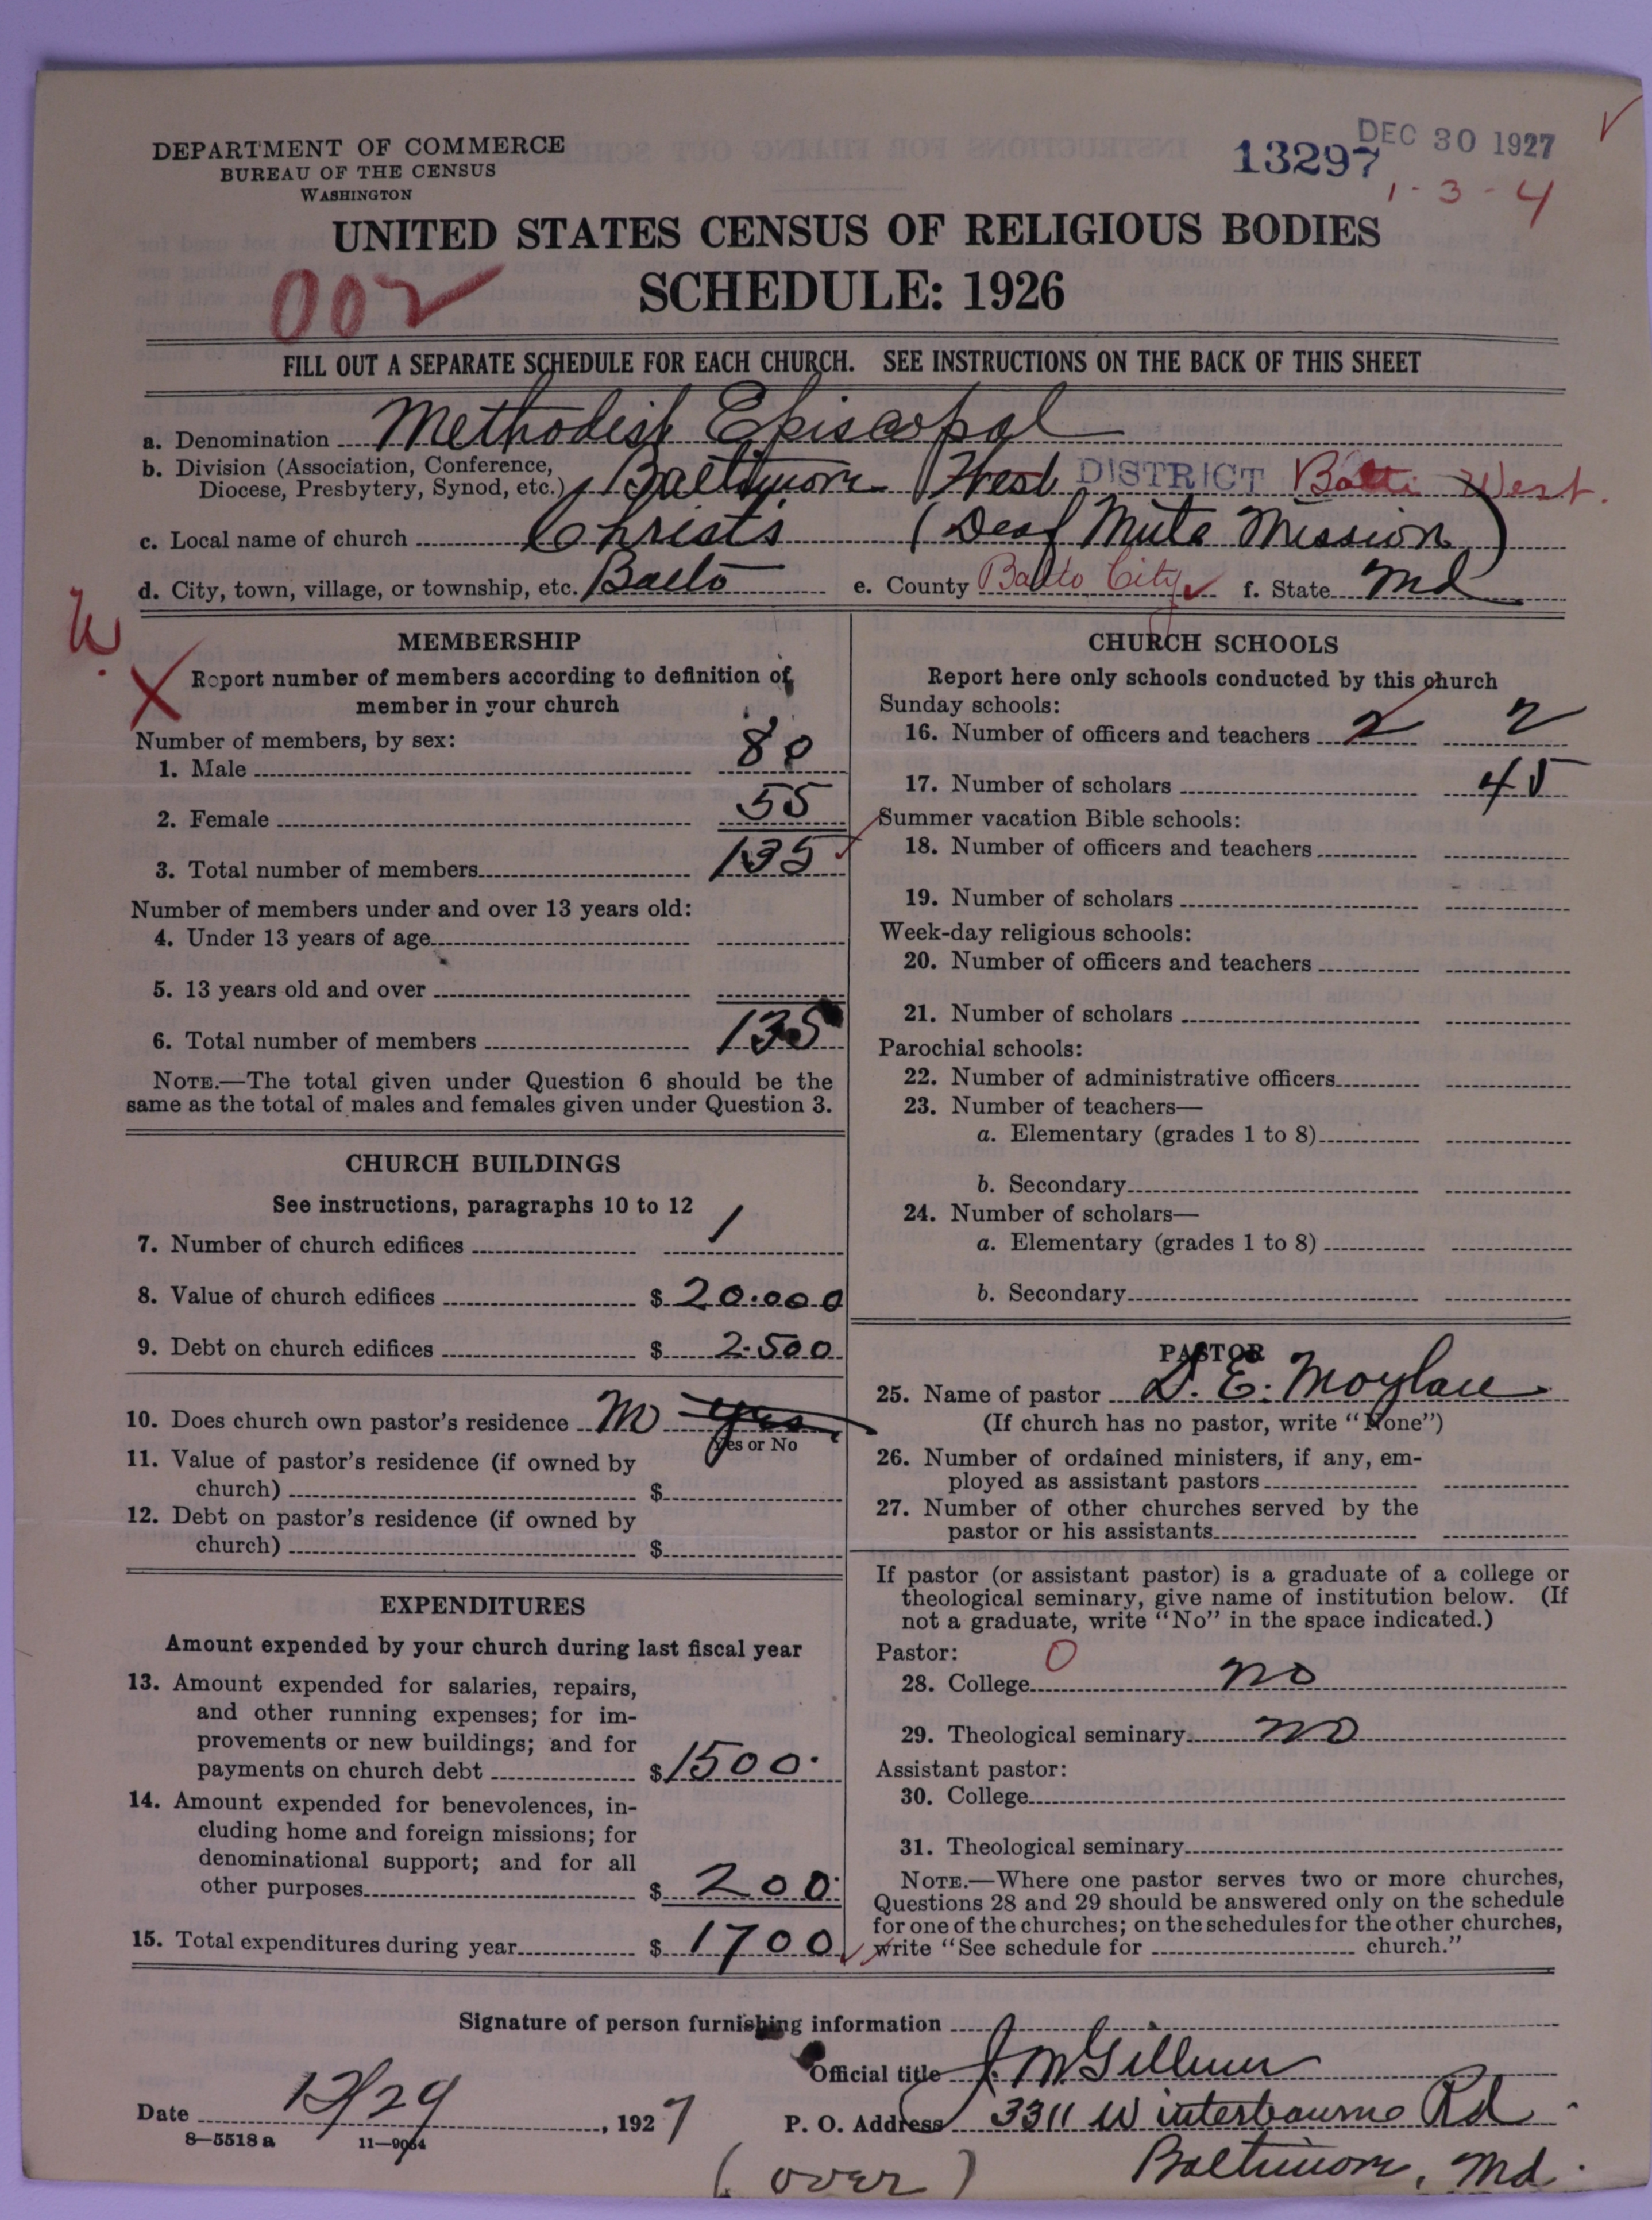 DEPARTMENT OF COMMERCE
BUREAU OF THE CENSUS
WASHINGTON
13297
DEC 30 1927
1-3-4
UNITED STATES CENSUS OF RELIGIOUS BODIES
002
SCHEDULE: 1926
FILL OUT A SEPARATE SCHEDULE FOR EACH CHURCH. SEE INSTRUCTIONS ON THE BACK OF THIS SHEET
a. Denomination Methodist Episcopal
b. Division (Association, Conference,
Diocese, Presbytery, Synod, etc.) Baltimore West DISTRICT Balti West.
c. Local name of church Christs (Deaf Mute Mission)
d. City, town, village, or township, etc. Balto e. County Balto City f. State Md
W.
X
MEMBERSHIP
Report number of members according to definition of
member in your church
Number of members, by sex:
1. Male 80
2. Female 55
3. Total number of members 135
Number of members under and over 13 years old:
4. Under 13 years of age
5. 13 years old and over
6. Total number of members 135
NOTE.—The total given under Question 6 should be the
same as the total of males and females given under Question 3.
CHURCH BUILDINGS
See instructions, paragraphs 10 to 12
7. Number of church edifices 1
8. Value of church edifices $ 20.000
9. Debt on church edifices $ 2.500
10. Does church own pastor's residence no yes
Yes or No
11. Value of pastor's residence (if owned by
church) $
12. Debt on pastor's residence (if owned by
church) $
EXPENDITURES
Amount expended by your church during last fiscal year
13. Amount expended for salaries, repairs,
and other running expenses; for im-
provements or new buildings; and for
payments on church debt $ 1500.
14. Amount expended for benevolences, in-
cluding home and foreign missions; for
denominational support; and for all
other purposes $ 200.
15. Total expenditures during year $ 1700
CHURCH SCHOOLS
Report here only schools conducted by this church
Sunday schools:
16. Number of officers and teachers 2 2
17. Number of scholars 45
Summer vacation Bible schools:
18. Number of officers and teachers
19. Number of scholars
Week-day religious schools:
20. Number of officers and teachers
21. Number of scholars
Parochial schools:
22. Number of administrative officers
23. Number of teachers—
a. Elementary (grades 1 to 8)
b. Secondary
24. Number of scholars—
a. Elementary (grades 1 to 8)
b. Secondary
PASTOR
25. Name of pastor D. E. Moylan
(If church has no pastor, write "None")
26. Number of ordained ministers, if any, em-
ployed as assistant pastors
27. Number of other churches served by the
pastor or his assistants
If pastor (or assistant pastor) is a graduate of a college or
theological seminary, give name of institution below. (If
not a graduate, write "No" in the space indicated.)
Pastor: 0
28. College no
29. Theological seminary no
Assistant pastor:
30. College
31. Theological seminary
NOTE.—Where one pastor serves two or more churches,
Questions 28 and 29 should be answered only on the schedule
for one of the churches; on the schedules for the other churches,
write "See schedule for church."
Signature of person furnishing information
Official title J. M. Gillum
Date 12/29, 1927 P. O. Address 3311 Winterbourne Rd
8—5518a 11—9064
(over) Baltimore, Md.